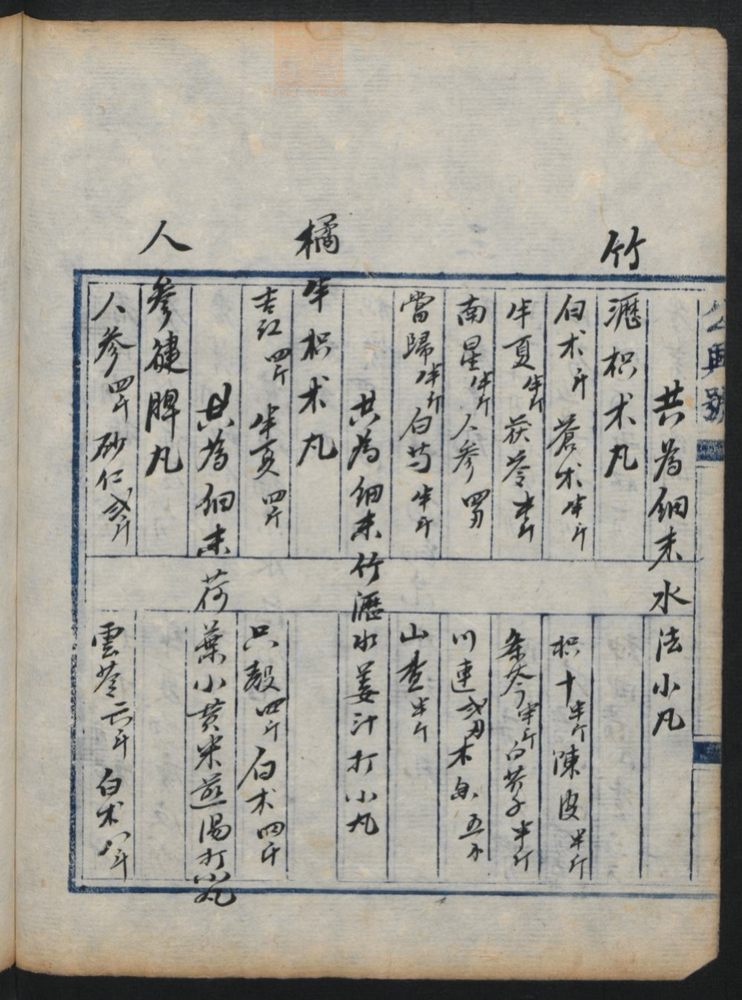 共為細末水法小丸
竹瀝枳朮丸
白朮斤 蒼朮半斤 枳十半斤 陳皮半斤
半夏半斤 茯苓半斤 条芩半斤 白芥子半斤
南星半斤 人參四刃 川連弍刃 木自五个
當歸半斤 白芍半斤 山查半斤
共為細末竹瀝水姜汁打小丸
橘半枳朮丸
吉紅四斤 半夏四斤 只殼四斤 白朮四斤
共為細末荷葉小黃米逰湯打小丸
人參健脾丸
人參四斤 砂仁弍斤 雲苓六斤 白朮八斤